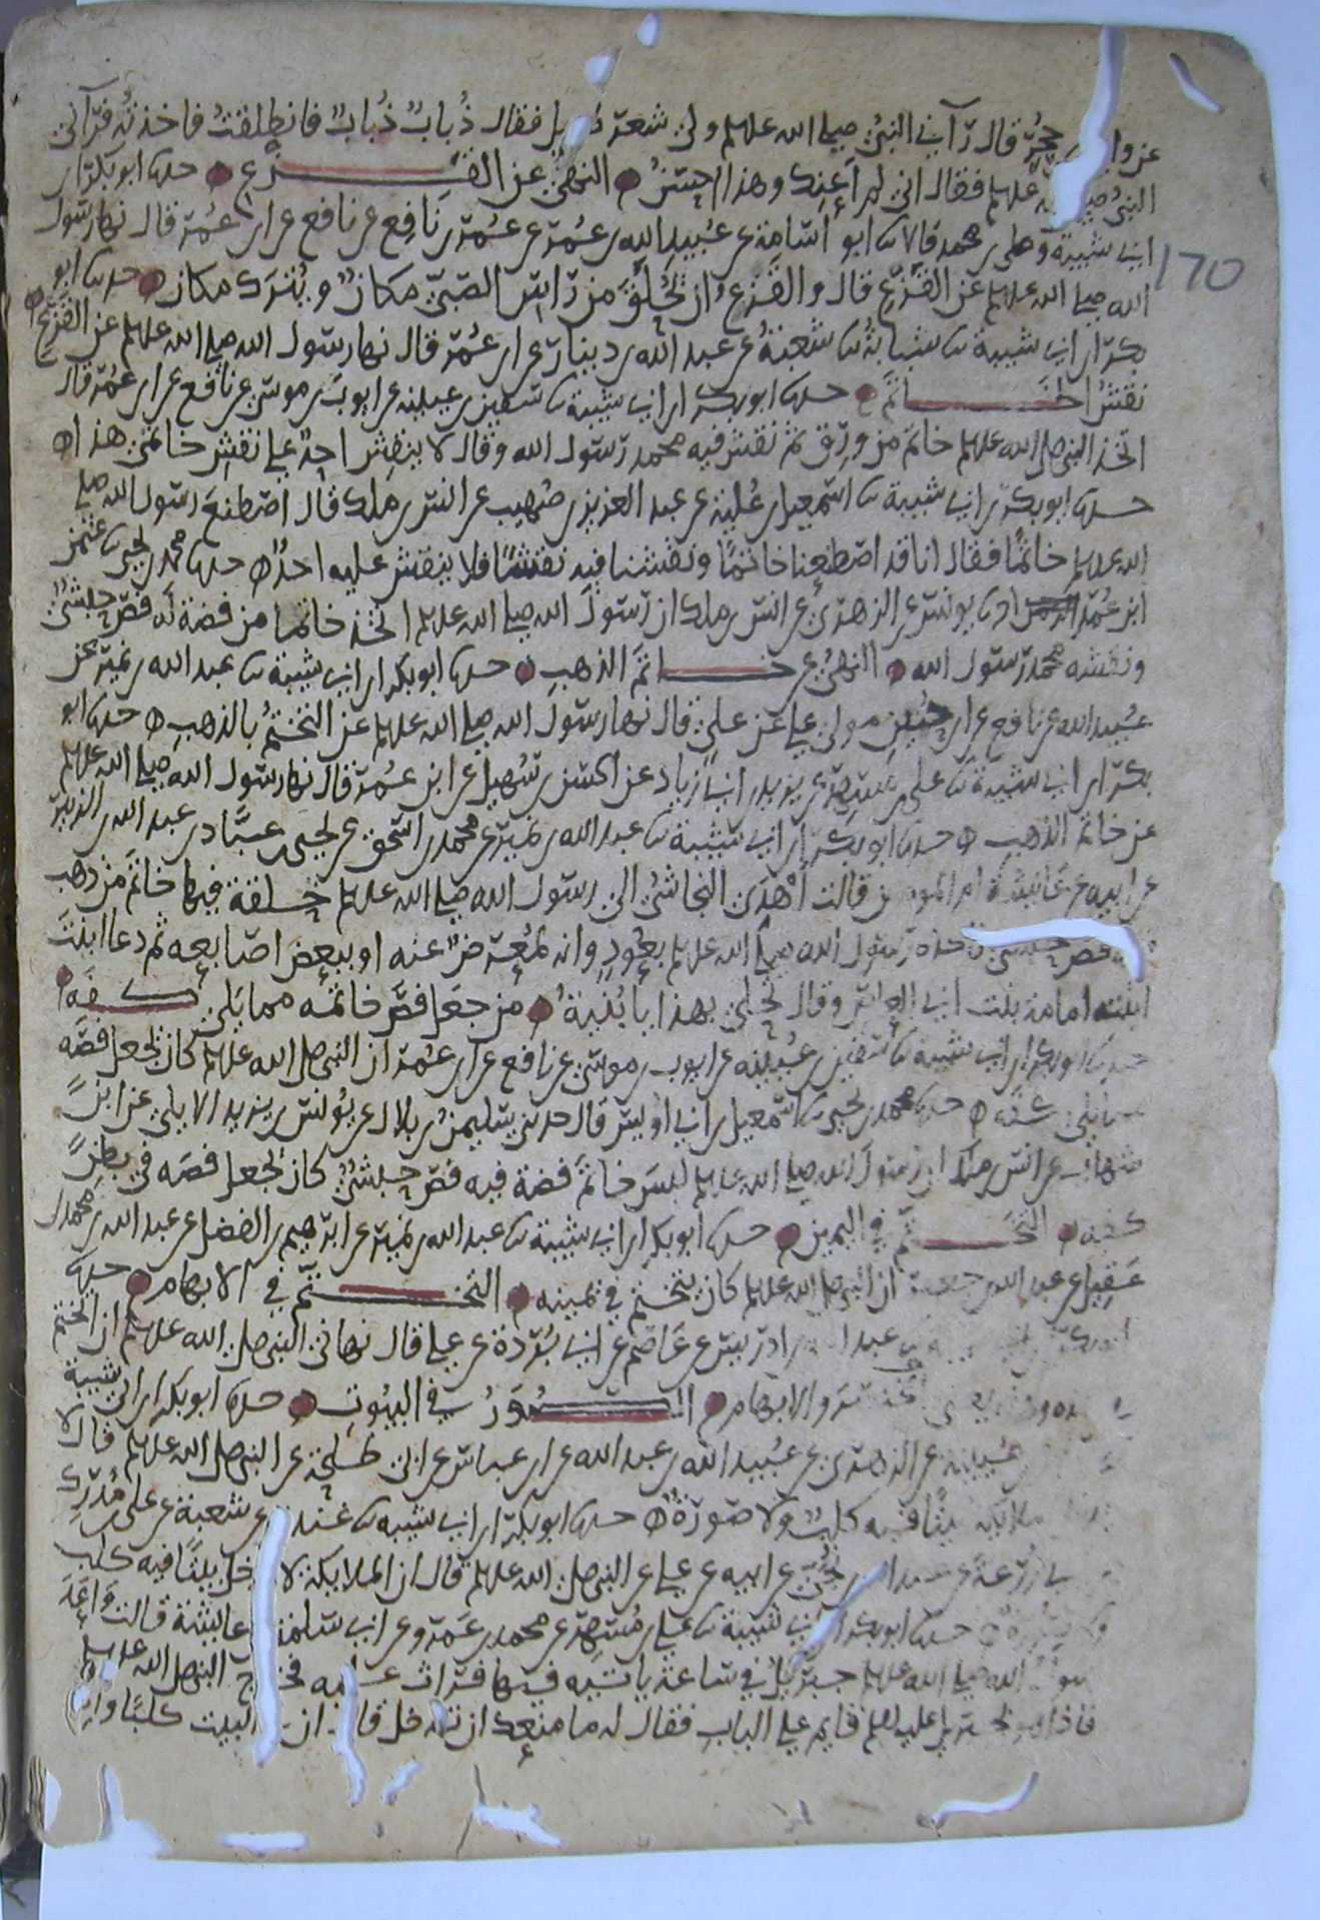 عن وا حجر قال رآني النبي صلى الله علىه ولي شعر فقال ذُبابٌ ذُبابٌ فانطلقتُ فاخذته فرآني
النبي صلى الله علىه فقال اني لم أعنك وهذا احسن النهي عن القزع حدثنا ابو بكر بن
ابي شيبة وعلي بن محمد قالا ثنا ابو أسامة عن عُبيد الله بن عُمر عن عُمر بن نافع عن نافع عن ابن عُمر قال نها رسول
170
الله صلى الله علىه عن القزع قال والقزع ان يُحلق من رأس الصبي مكانٌ ويُترك مكان حدثنا ابو
بكر ابن ابي شيبة ثنا شبابة ثنا شعبة عن عبد الله بن دينار عن ابن عُمر قال نها رسول الله صلى الله علىه عن القزع
نقش الخاتم حدثنا ابو بكر ابن ابي شيبة ثنا سفين بن عيينه عن ايوب بن موسى عن نافع عن ابن عُمر قال
اتخذ النبي صلى الله علىه خاتم من ورق ثم نقش فيه محمد رسول الله وقال لا ينقش احدٌ على نقش خاتمي هذا
حدثنا ابو بكر بن ابي شيبة ثنا اسمعيل بن عُلية عن عبد العزيز بن صُهيب عن انس بن ملك قال اصطنع رسول الله صلى
الله علىه خاتمًا فقال انا قد اصطنعنا خاتمًا ونقشنا فيه نقشًا فلا ينقش عليه احدٌ حدثنا محمد بن يحيى ثنا عثمن
ابن عُمر ثنا يونس عن الزهري عن انس بن ملك ان رسول الله صلى الله علىه اتخذ خاتما من فضة له فص حبشي
ونقشه محمد رسول الله النهي عن خاتم الذهب حدثنا ابو بكر ابن ابي شيبة ثنا عبد الله بن نمير عن
عُبيد الله عن نافع عن ابن حُنين مولى علي عن علي قال نها رسول الله صلى الله علىه عن التختم بالذهب حدثنا ابو
بكر ابن ابي شيبة ثنا علي بن مسهر عن يزيد بن ابي زياد عن الحسن بن سُهيل عن ابن عُمر قال نها رسول الله صلى الله علىه
عن خاتم الذهب حدثنا ابو بكر ابن ابي شيبة ثنا عبد الله بن نمير عن محمد بن اسحق عن يحيى بن عبّاد بن عبد الله بن الزبير
عن ابيه عن عائشة ام المومنين قالت أهدى النجاشي الى رسول الله صلى الله علىه حلقة فيها خاتم من ذهب
فص حبشي فاخذه رسول الله صلى الله علىه بعُودٍ وانه لمُعرضٌ عنه او ببعض اصابعه ثم دعا ابنت
ابنته امامة بنت ابي العاص وقال تحلي بهذا يا بُنية من جعل فص خاتمه مما يلي كفه
حدثنا ابو بكر ابن ابي شيبه ثنا سفين بن عُيينه عن ايوب بن موسى عن نافع عن ابن عُمر ان النبي صلى الله علىه كان يجعل فصه
مما يلي كفه حدثنا محمد بن يحيى ثنا اسمعيل بن ابي أويس قال حدثني سليمن بن بلال عن يونس بن يزيد الايلي عن ابن
شهاب عن انس بن ملك ان رسول الله صلى الله علىه لبس خاتم فضة فيه فص حبشي كان يجعل فصه في بطن
كفه التختم في اليمين حدثنا ابو بكر ابن ابي شيبة ثنا عبد الله بن نمير عن ابرهيم بن الفضل عن عبد الله بن محمد بن
عقيل عن عبد الله بن جعفر ان النبي صلى الله علىه كان يتختم في يمينه التختم في الابهام حدثنا
ابو بكر عبد ا ادريس عن عاصم عن ابي بُردة عن علي قال نهاني النبي صلى الله علىه ان اتختم
والابهام الصُوَرُ في البيُوت حدثنا ابو بكر ابن ابي شيبة
عُيينه عن الزهري عن عُبيد الله بن عبد الله عن ابن عباس عن ابي طلحة عن النبي صلى الله علىه قال لا
بيتًا فيه كلبٌ ولا صورةٌ حدثنا ابو بكر ابن ابي شيبه ثنا غندر عن شعبة عن علي بن مُدرك
زُرعة عن عبد الله بن نُجي عن ابيه عن علي عن النبي صلى الله علىه قال ان الملايكة لا تدخل بيتًا فيه كلب
حدثنا ابو بكر ابن ابي شيبة ثنا علي بن مُسهر عن محمد بن عمرو عن ابي سلمة عايشة قالت واعد
رسول الله صلى الله علىه جبريل في ساعة ياتيه فيها فراث عليه فخرج النبي صلى الله علىه
فاذا هو بجبريل قايم على الباب فقال له ما منعك ان تدخل قال ان البيت كلبًا وان